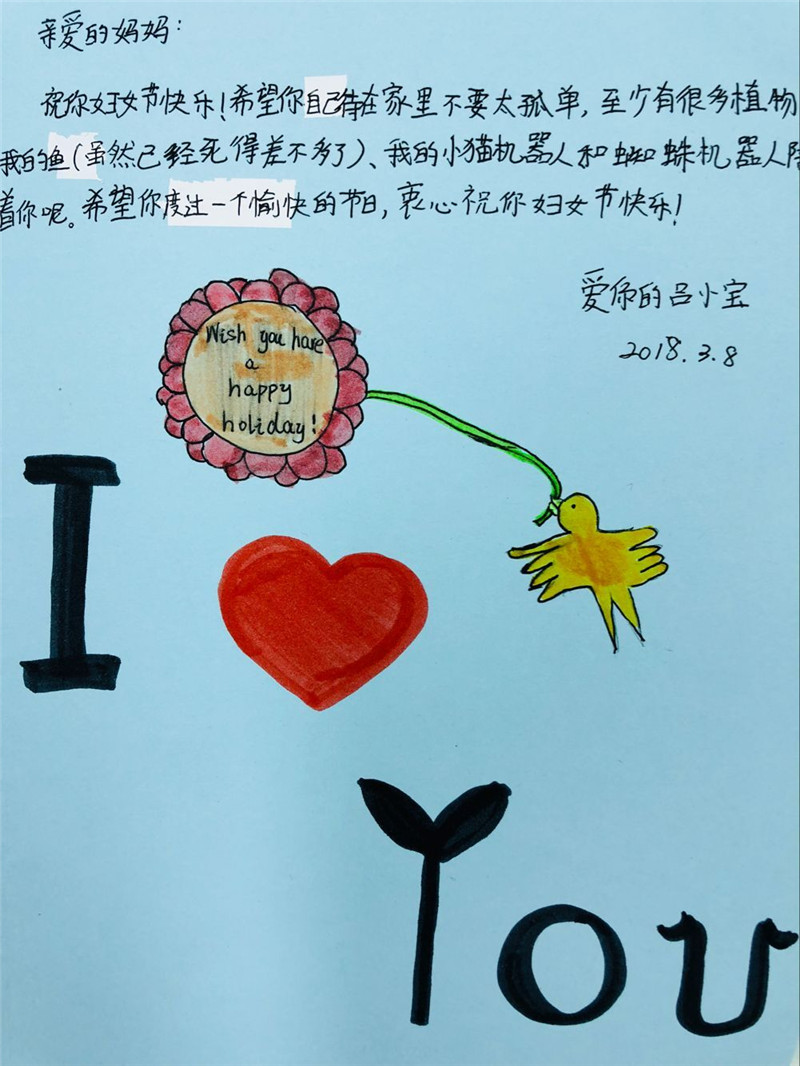 亲爱的妈妈：
祝你妇女节快乐！希望你自己待在家里不要太孤单，至少有很多植物
我的鱼（虽然已经死得差不多了）、我的小猫机器人和蜘蛛机器人陪
着你呢。希望你度过一个愉快的节日，衷心祝你妇女节快乐！
爱你的吕小宝
2018.3.8
Wish you have
a
happy
holiday!
I
You